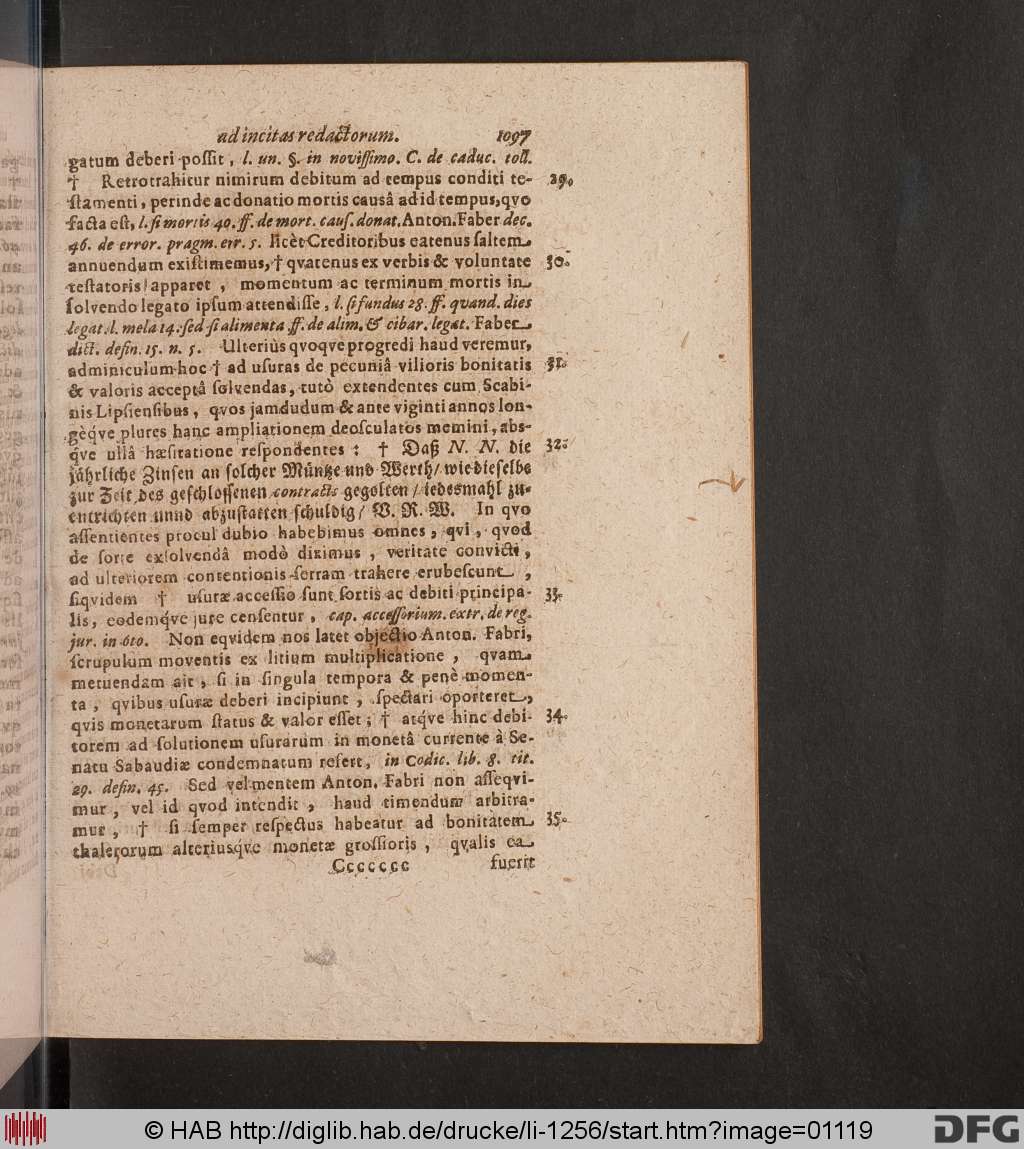 ad incitas redactorum. 1097
gatum deberi possit, l. un. §. in novissimo. C. de caduc. toll.
† Retrotrahitur nimirum debitum ad tempus conditi te- 29.
stamenti, perinde ac donatio mortis causâ ad id tempus, qvo
facta est, l. si mortis 40. ff. de mort. caus. donat. Anton. Faber dec.
46. de error. pragm. err. 5. licèt Creditoribus eatenus saltem
annuendum existimemus, † qvatenus ex verbis & voluntate 30.
testatoris apparet, momentum ac terminum mortis in
solvendo legato ipsum attendisse, l. si fundus 28. ff. quand. dies
legat. l. mela 14. sed si alimenta ff. de alim. & cibar. legat. Faber
dict. defin. 15. n. 5. Ulteriùs qvoqve progredi haud veremur,
adminiculum hoc † ad usuras de pecuniâ vilioris bonitatis 31.
& valoris acceptâ solvendas, tutò extendentes cum Scabi-
nis Lipsiensibus, qvos jamdudum & ante viginti annos lon-
gèqve plures hanc ampliationem deosculatos memini, abs-
qve ullâ hæsitatione respondentes: † Daß N. N. die 32.
jährliche Zinsen an solcher Müntze und Werth/ wie dieselbe
zur Zeit des geschlossenen contracts gegolten/ iedesmahl zu-
entrichten unnd abzustatten schuldig/ V. R. W. In qvo
assentientes procul dubio habebimus omnes, qvi, qvod
de sorte exsolvendâ modò diximus, veritate convicti,
ad ulteriorem contentionis serram trahere erubescunt,
siqvidem † usuræ accessio sunt sortis ac debiti principa- 33.
lis, eodemqve jure censentur, cap. accessorium. extr. de reg.
jur. in 6to. Non eqvidem nos latet objectio Anton. Fabri,
scrupulum moventis ex litium multiplicatione, qvam
metuendam ait, si in singula tempora & penè momen-
ta, qvibus usuræ deberi incipiunt, spectari oporteret,
qvis monetarum status & valor esset; † atqve hinc debi- 34.
torem ad solutionem usurarum in monetâ currente à Se-
natu Sabaudiæ condemnatum refert, in Codic. lib. 8. tit.
29. defin. 45. Sed vel mentem Anton. Fabri non asseqvi-
mur, vel id qvod intendit, haud timendum arbitra-
mur, † si semper respectus habeatur ad bonitatem 35.
thalerorum alteriusqve monetæ grossioris, qvalis ea
Ccccccc fuerit
© HAB http://diglib.hab.de/drucke/li-1256/start.htm?image=01119
DFG